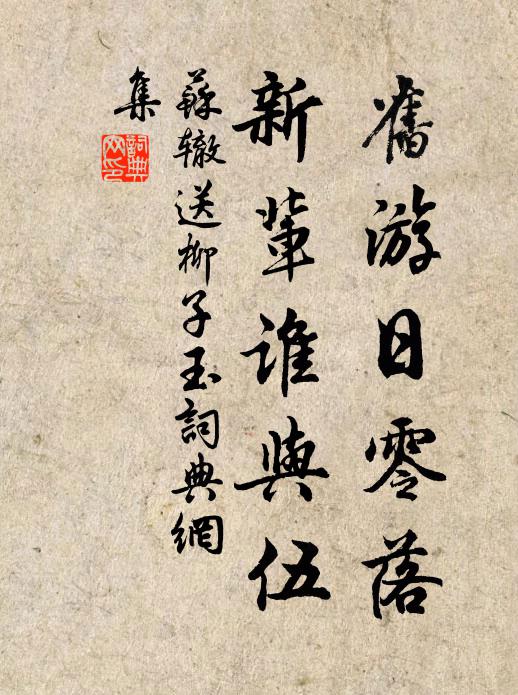 舊游日零落
新輩誰與伍
蘇轍送柳子玉詞典網
集
詞典
网印